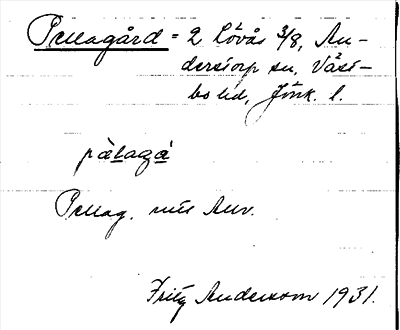 Pellagård = 2 Lövås 3/8, An-
derstorp sn, Väst-
bo hd, Jönk. l.
pä̀lagá
Pellag. mils Anv.
Fritz Anderson 1931.